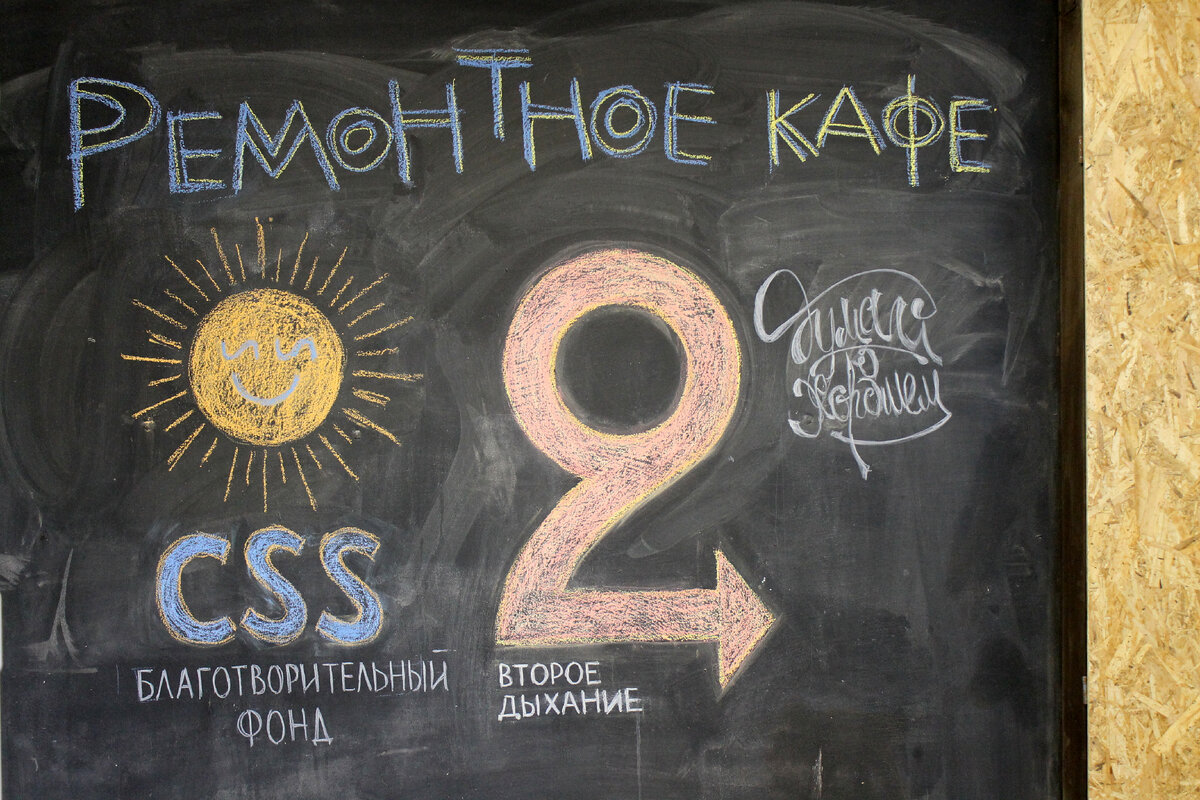 РЕМОНТНОЕ КАФЕ
Думай
о
хорошем
CSS
БЛАГОТВОРИТЕЛЬНЫЙ
ФОНД
2
ВТОРОЕ
ДЫХАНИЕ